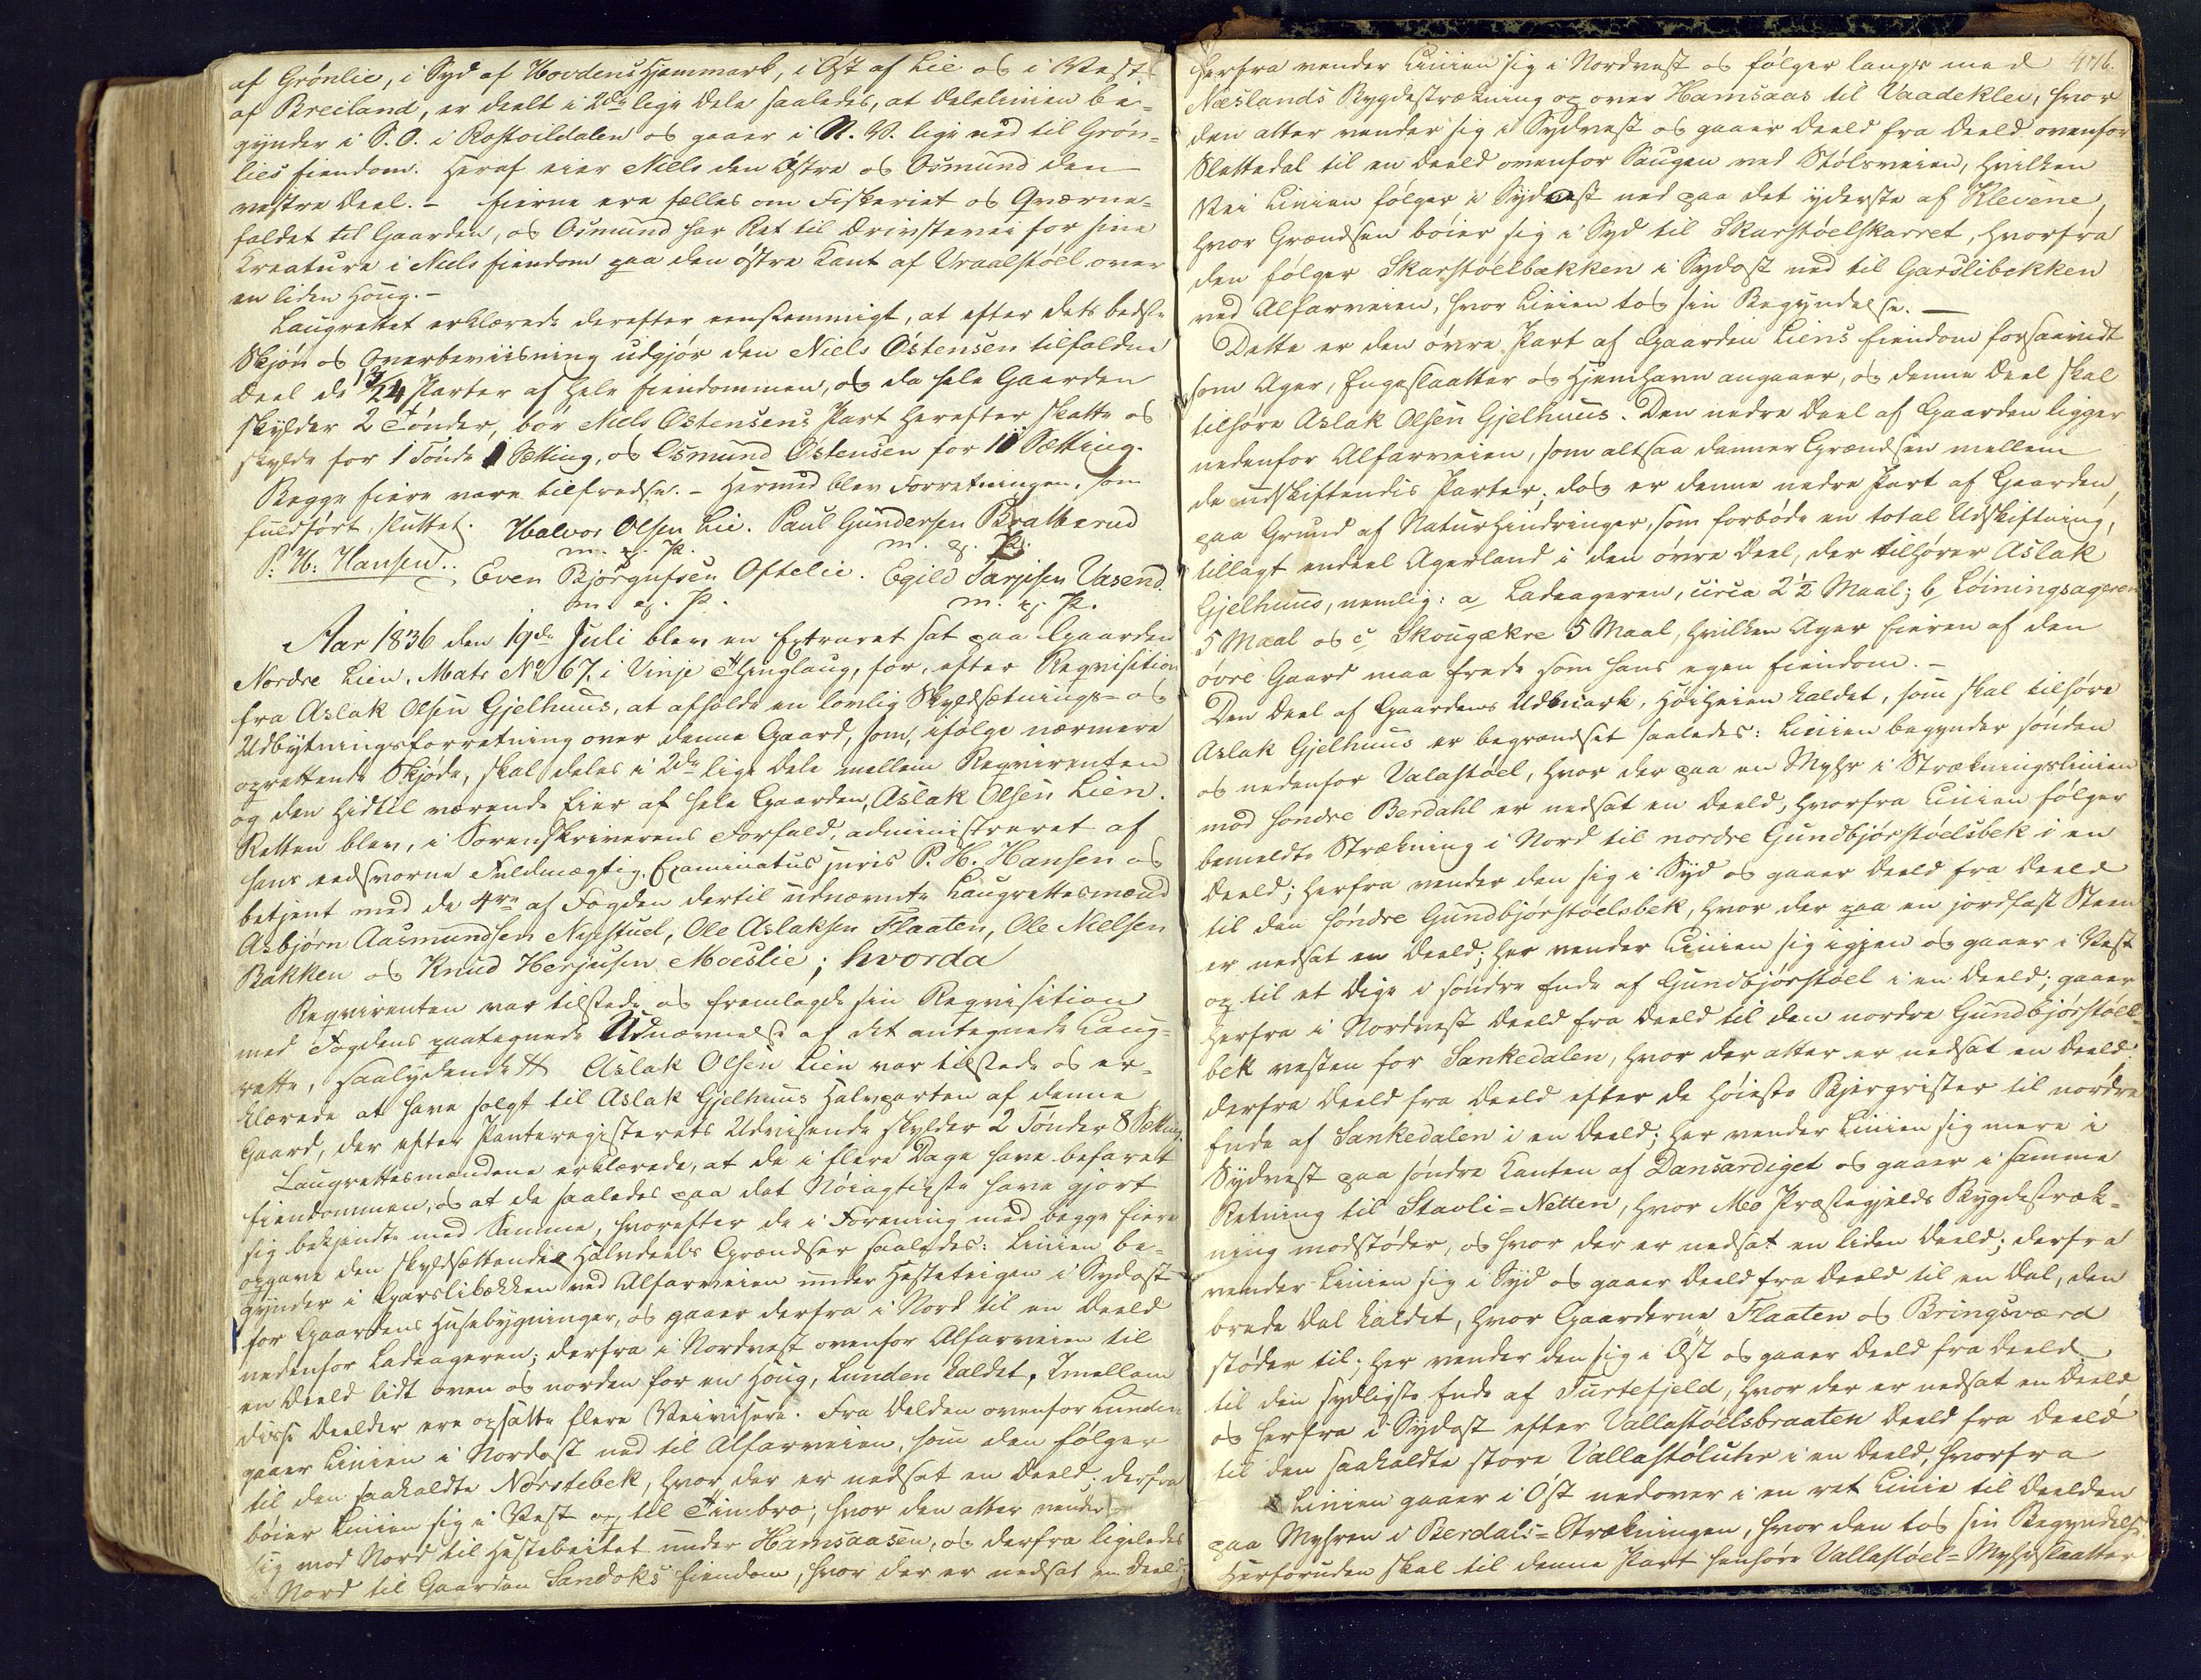 af Grönlie, i Syd af Hovdens Hjemmark, i Øst af Lie og i Vest
af Breiland, er deelt i 2de lige Dele saaledes, at Delelinien be-
gynder i S.O. i Rostvildalen og gaaer i N.V. lige ned til Grön-
lies Eiendom. Heraf eier Niels den östre og Osmund den
vestre Deel. – Eierne ere fælles om Fiskeriet og Qværne-
faldet til Gaarden, og Osmund har Ret til Drivstevei for sine
Kreature i Niels Eiendom paa den östre Kant af Vraalstöel over
en liden Houg. –
Laugrettet erklærede derefter eenstemmigt, at efter dets bedste
Skjön og Overbeviisning udgjör den Niels Östensen tilfaldne
Deel de 13/24 Parter af hele Eiendommen, og da hele Gaarden
skylder 2 Tönder, bör Niels Östensens Part herefter skatte og
skylde for 1 Tönde 1 Setting, og Osmund Östensen for 11 Setting.
Begge Eiere vare tilfredse. – Hermed blev Forretningen, som
fuldfört, sluttet. Halvor Olsen Lie. Paul Gundersen Bratterud
P. H. Hansen. m. f. P. m. f. P.
Even Björgufsen Oftelie. Egild Tarjesen Vasend.
m. f. P. m. f. P.
Aar 1836 den 19de Juli blev en Extraret sat paa Gaarden
Nordre Lien, Matr No 67, i Vinje Thinglaug, for, efter Reqvisition
fra Aslak Olsen Gjelhuus, at afholde en lovlig Skyldsætnings- og
Udbytningsforretning over denne Gaard, som, ifölge nærmere
oprettende Skjöde, skal deles i 2de lige Dele mellem Reqvirenten
og den hidtil værende Eier af hele Gaarden, Aslak Olsen Lien.
Retten blev, i Sorenskriverens Forfald, administreret af
hans eedsvorne Fuldmægtig, Examinatus juris P. H. Hansen og
betjent med de 4re af Fogden dertil udnævnte Laugrettesmænd
Asbjörn Aasmundsen Nystuel, Ole Aslaksen Flaaten, Ole Nielsen
Bakken og Knud Herjusen Moeslie; hvorda
Reqvirenten var tilstede og fremlagde sin Reqvisition
med Fogdens paategnede Udnævnelse af det antegnede Laug-
rette, saalydende # Aslak Olsen Lien var tilstede og er-
klærede at have solgt til Aslak Gjelhuus Halvparten af denne
Gaard, der efter Panteregisterets Udvisende skylder 2 Tönder 8 Setting.
Laugrettesmændene erklærede, at de i flere Dage have befaret
Eiendommen, og at de saaledes paa det Nöiagtigste have gjort
sig bekjendte med Samme, hvorefter de i Forening med begge Eiere
opgave den skyldsættendes Halvdeels Grændser saaledes: Linien be-
gynder i Garslibækken ved Alfarveien under Hesteteigen i Sydost
for Gaardens Husebygninger, og gaaer derfra i Nord til en Deeld
nedenfor Ladeageren; derfra i Nordvest ovenfor Alfarveien til
en Deeld lidt oven og norden for en Houg, Lunden kaldet. Imellem
disse Deelder ere opsatte flere Veivisere. Fra Delden ovenfor Lunden
gaaer Linien i Nordost ned til Alfarveien, som den fölger
til den saakaldte Nörstebek, hvor der er nedsat en Deeld; derfra
böier Linien sig i Vest op til Timbræ, hvor den atter vender
sig mod Nord til Hestebeitet under Hamsaasen, og derfra ligeledes
i Nord til Gaarden Sandoks Eiendom, hvor der er nedsat en Deeld;
476.
herfra vender Linien sig i Nordvest og fölger langs med
Næslands Bygdestrækning op over Hamsaas til Vaadeklev, hvor
den atter vender sig i Sydvest og gaaer Deeld fra Deeld ovenfor
Slettedal til en Deeld ovenfor Haugen ved Stölsveien, hvilken
Vei Linien fölger i Sydvest ned paa det yderste af Klevene,
hvor Grændsen böier sig i Syd til Skarstöelskarret, hvorfra
den fölger Skarstöelbækken i Sydost ned til Garslibekken
ved Alfarveien, hvor Linien tog sin Begyndelse. –
Dette er den övre Part af Gaarden Liens Eiendom forsaavidt
som Ager, Engeslaatter og Hjemhavn angaaer, og denne Deel skal
tilhöre Aslak Olsen Gjelhuus. Den nedre Deel af Gaarden ligger
nedenfor Alfarveien, som altsaa danner Grændsen mellem
de udskiftendes Parter; dog er denne nedre Part af Gaarden,
paa Grund af Naturhindringer, som forböde en total Udskiftning,
tillagt endeel Agerland i den övre Deel, der tilhörer Aslak
Gjelhuus, nemlig: a, Ladeageren, circa 2 1/2 Maal; b, Löiningsageren
5 Maal og c, Skougækre 5 Maal, hvilken Ager Eieren af den
övre Gaard maa frede som hans egen Eiendom. –
Den Deel af Gaardens Udmark, Höiheien kaldet, som skal tilhöre
Aslak Gjelhuus er begrændset saaledes: Linien begynder sönden
og nedenfor Valastöel, hvor der paa en Myhr i Strækningslinien
mod söndre Berdahl er nedsat en Deeld, hvorfra Linien fölger
bemeldte Strækning i Nord til nordre Gundbjörstöelsbek i en
Deeld; herfra vender den sig i Syd og gaaer Deeld fra Deeld
til den söndre Gundbjörstöelsbek, hvor der paa en jordfast Steen
er nedsat en Deeld; her vender Linien sig igjen og gaaer i Vest
op til et Dige i söndre Ende af Gundbjörstöel i en Deeld; gaaer
herfra i Nordvest Deeld fra Deeld til den nordre Gundbjörstöel-
bek vesten for Sankedalen, hvor der atter er nedsat en Deeld;
derfra Deeld fra Deeld efter de höieste Bjergrister til nordre
Ende af Sankedalen i en Deeld; her vender Linien sig mere i
Sydvest paa söndre Kanten af Dansardiget og gaaer i samme
Retning til Stavli-Netten, hvor Moe Præstegjelds Bygdestræk-
ning modstöder, og hvor der er nedsat en liden Deeld; derfra
vender Linien sig i Syd og gaaer Deeld fra Deeld til en Dal, den
brede Dal kaldet, hvor Gaarderne Flaaten og Bringsværd
stöder til; her vender den sig i Öst og gaaer Deeld fra Deeld
til den sydligste Ende af Turtefjeld, hvor der er nedsat en Deeld
og herfra i Sydost efter Vallastöelsbraaten Deeld fra Deeld
til den saakaldte store Vallastöluhr i en Deeld, hvorfra
Linien gaaer i Öst nedover i en ret Linie til Deelden
paa Myhren i Berdals-Strækningen, hvor den tog sin Begyndelse.
Herforuden skal til denne Part henhöre Vallastöel-Myhrslaatter